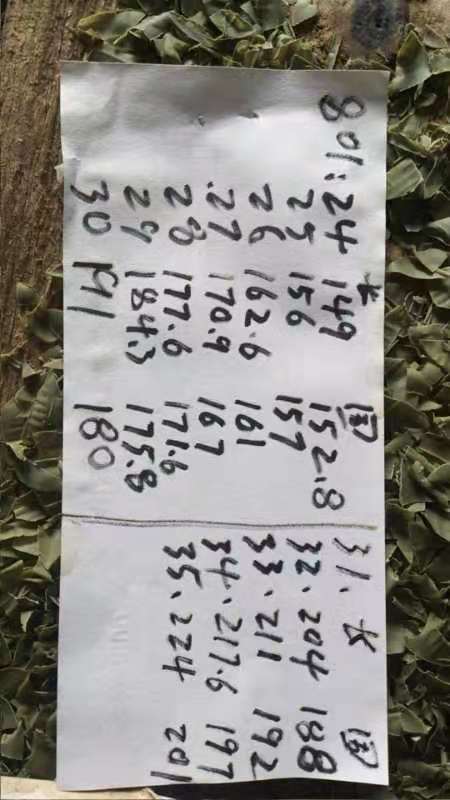 长 围
801:24 149 152.8
25 156 157
26 162.6 161
27 170.9 167
28 177.6 171.6
29 184.3 175.8
30 191 180
31、长 围
32、204 188
33、211 192
34、217.6 197
35、224 201